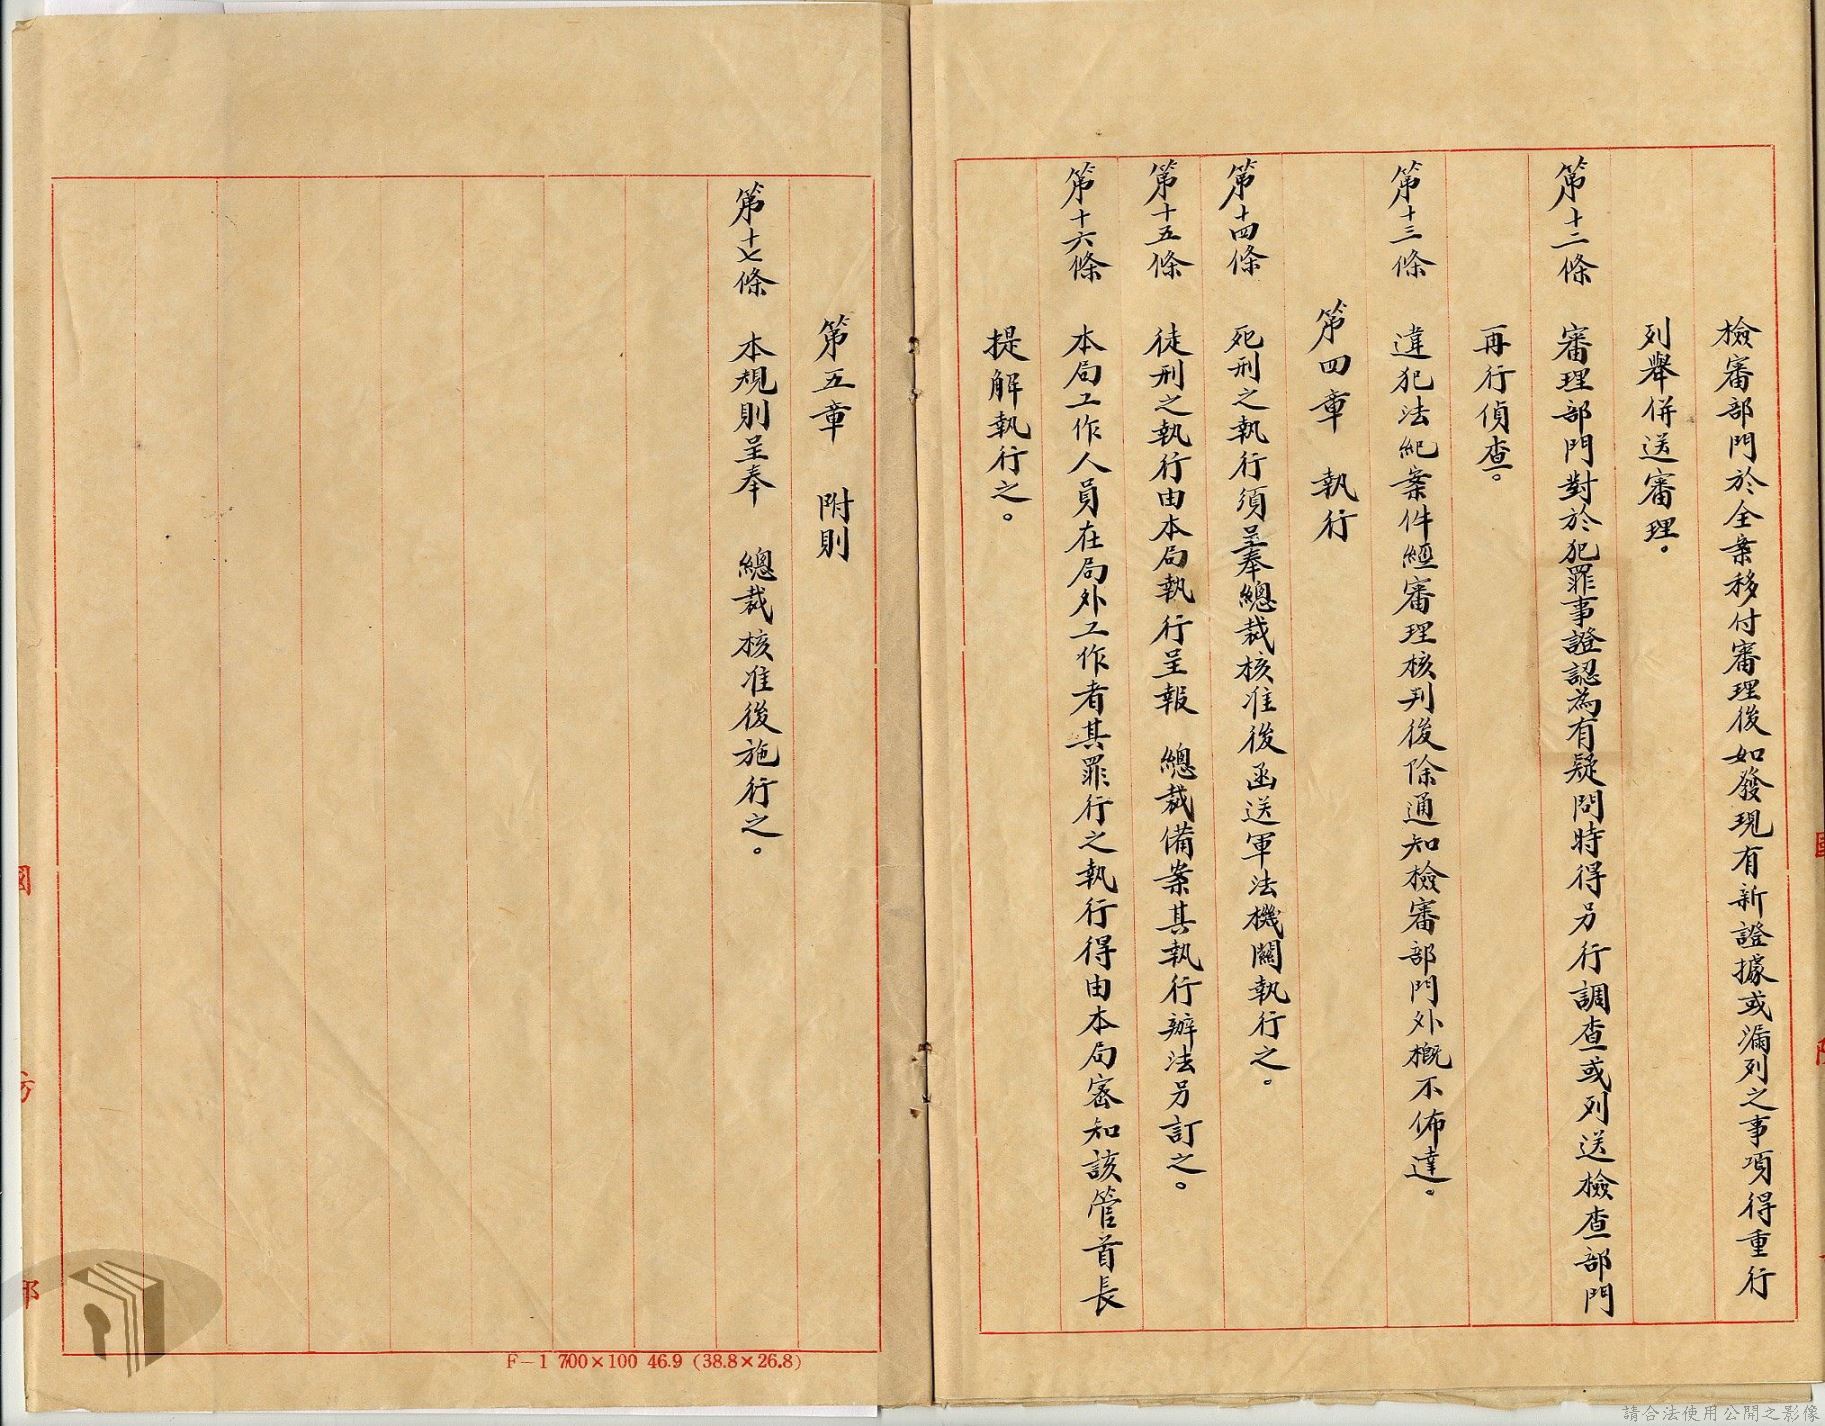 檢審部門於全案移付審理後如發現有新證據或漏列之事項得重行
列舉併送審理。
第十二條　審理部門對於犯罪事證認為有疑問時得另行調查或列送檢查部門
再行偵查。
第十三條　違犯法紀案件經審理核判後除通知檢審部門外概不佈達。
第四章　執行
第十四條　死刑之執行須呈奉總裁核准後函送軍法機關執行之。
第十五條　徒刑之執行由本局執行呈報　總裁備案其執行辦法另訂之。
第十六條　本局工作人員在局外工作者其罪行之執行得由本局密知該管首長
提解執行之。
第五章　附則
第十七條　本規則呈奉　總裁核准後施行之。
國防部
F-1 700×100 46.9 (38.8×26.8)
請合法使用公開之影像